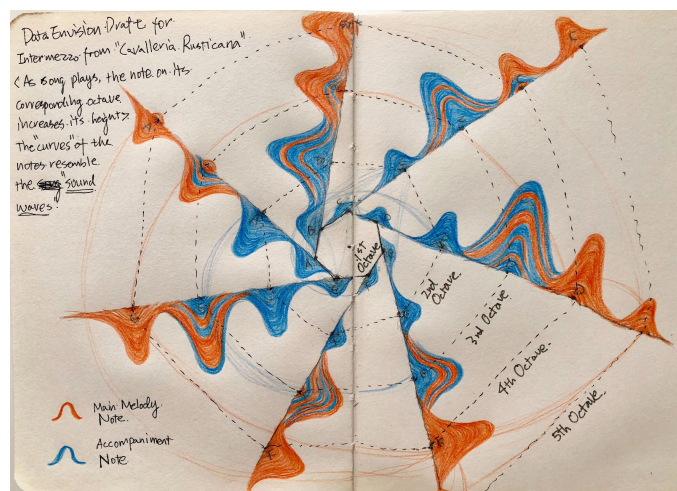 Data Envision Draft for
Intermezzo from "Cavalleria Rusticana"
<As song plays, the note on its
corresponding octave
increases its height>
The "curves" of the
notes resemble
the "sound
waves".
1st
Octave
2nd
Octave.
3rd Octave.
4th Octave.
5th Octave.
Main Melody
Note.
Accompaniment
Note